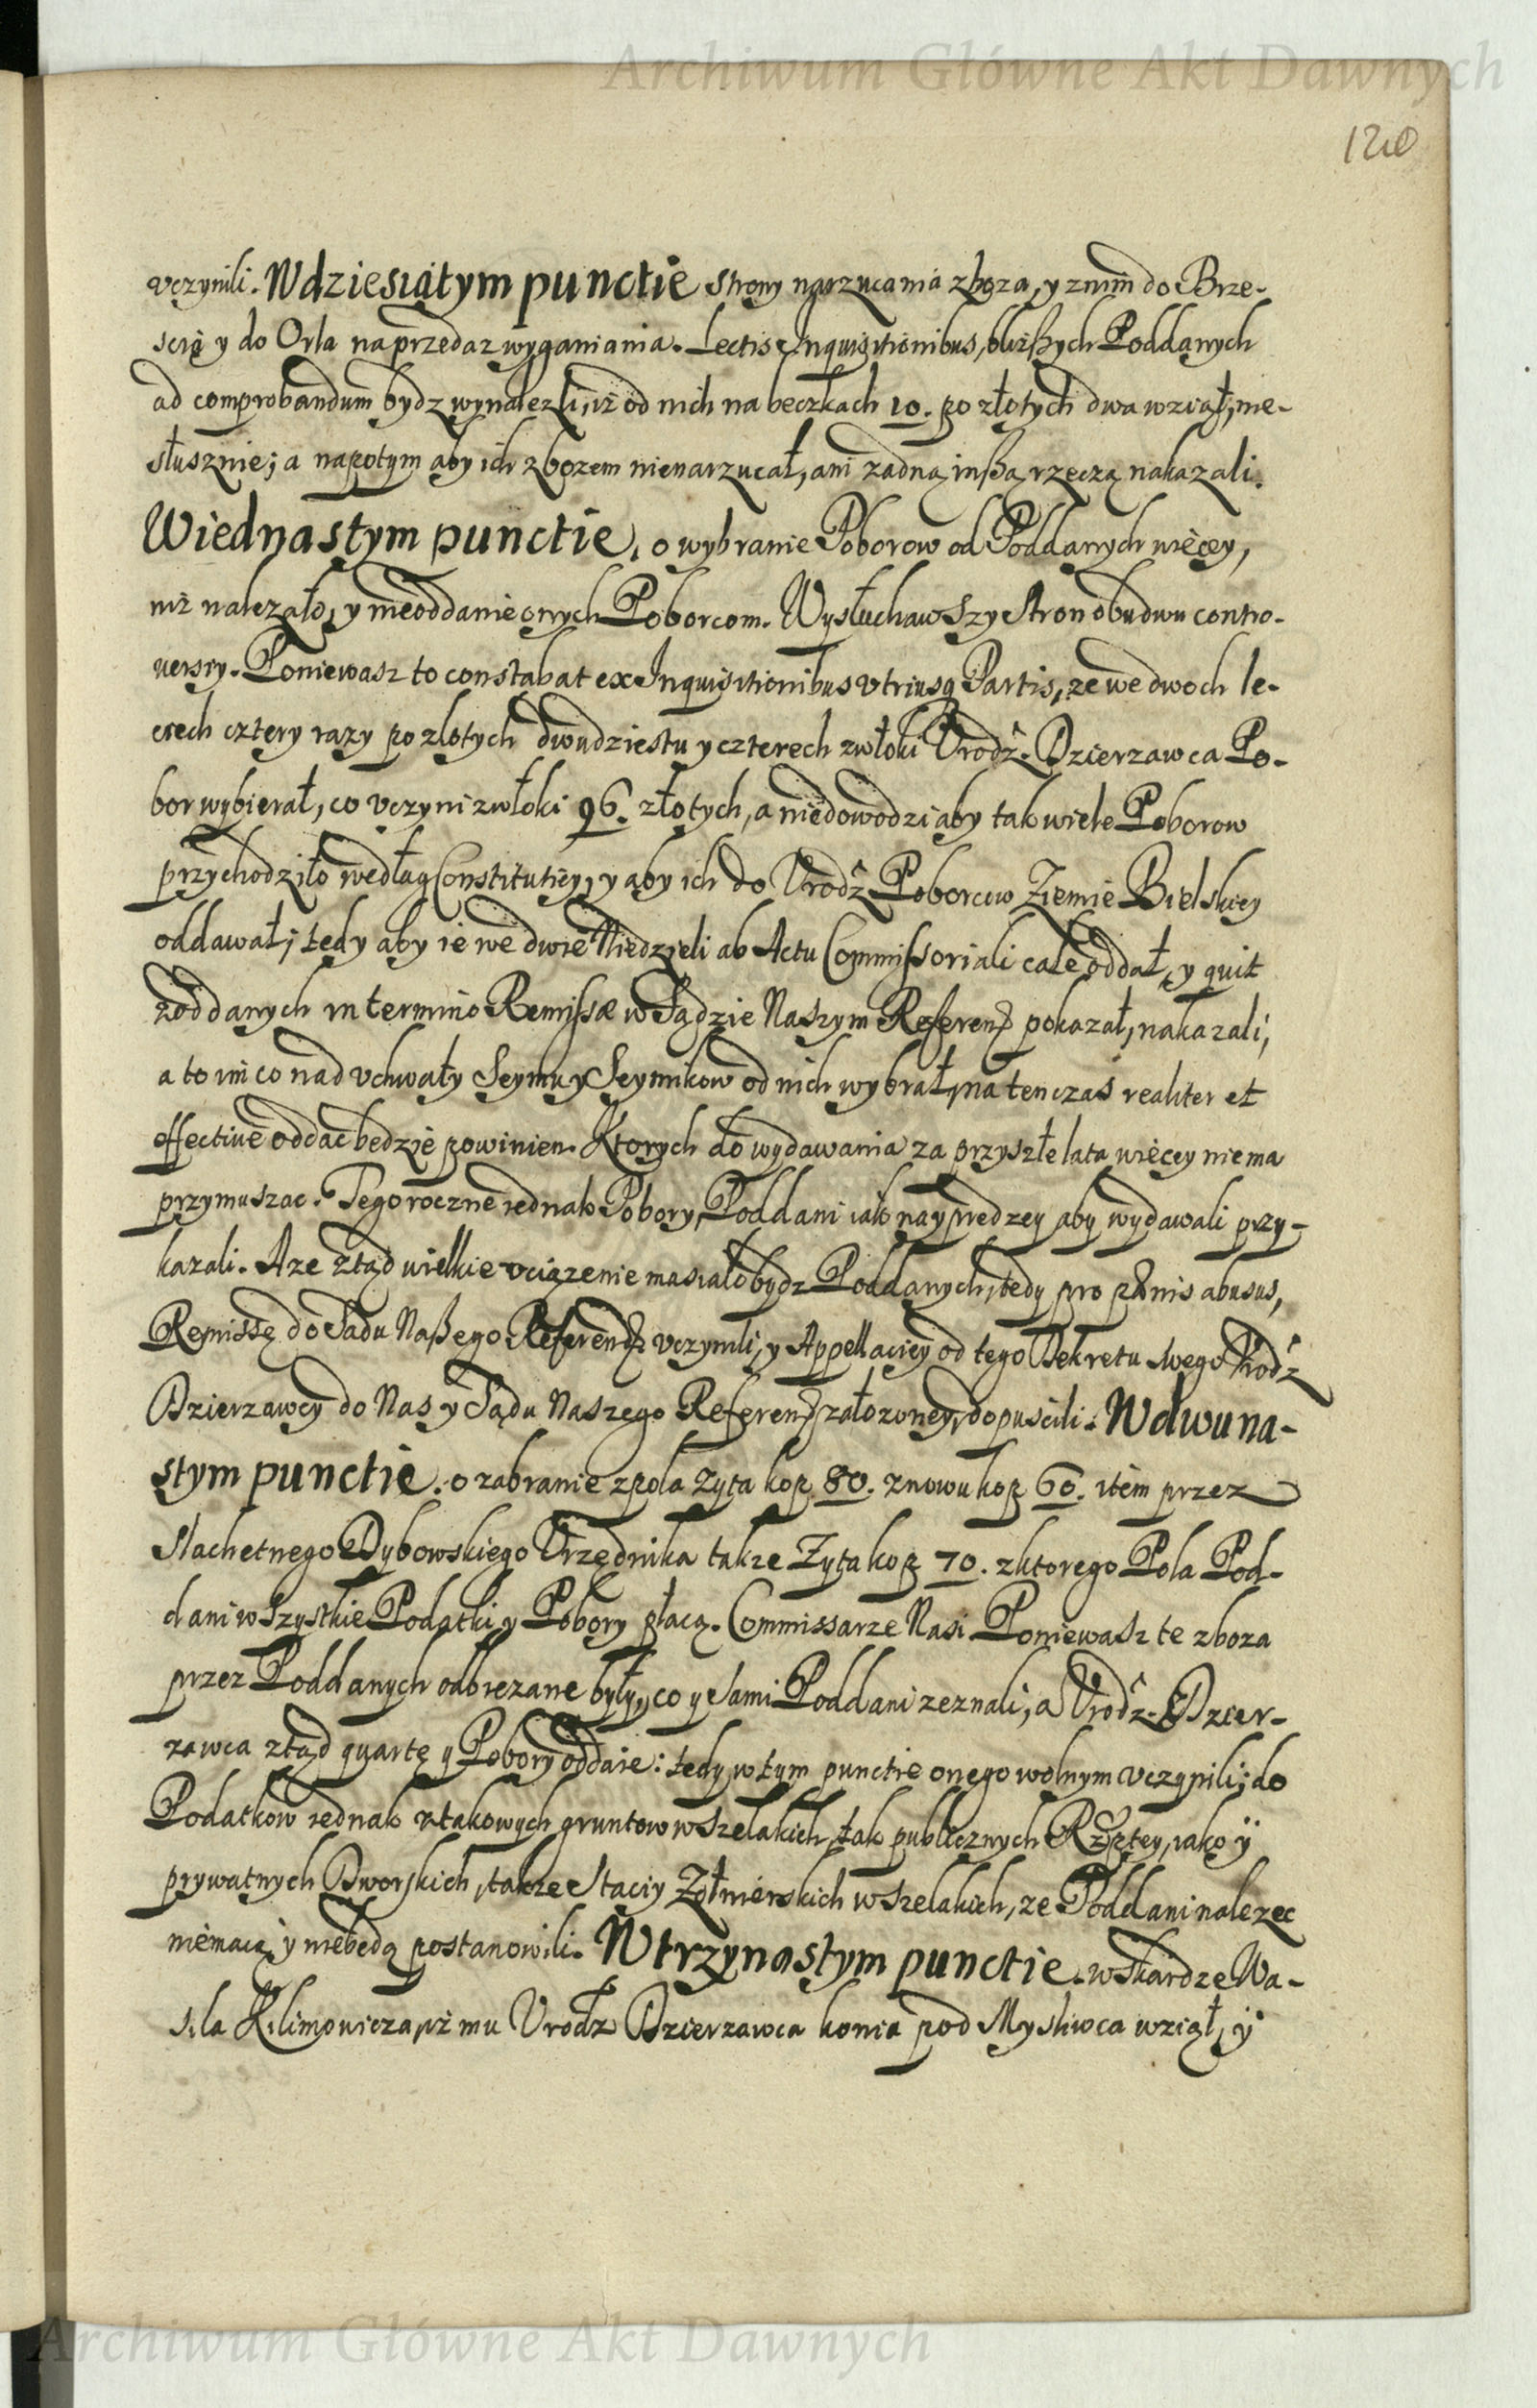 Archiwum Główne Akt Dawnych
120
vczynili. W dziesiątym punctie strony narzucania zboza, y znim do Brze-
scia y do Orla na przedaz wyganiania. Lectis Inquisitionibus, bliższych Poddanych
ad comprobandum bydz wynalezli, iż od nich na beczkach 10. po złotych dwa wziął, nie-
słusznie; a napotym aby ich zbozem nienarzucał, ani zadną inszą rzeczą nakazali.
W iednastym punctie, o wybranie Poborow od Poddanych więcey,
niż nalezało, y nieoddanie onych Poborcom. Wysłuchawszy Stron obudwu contro-
versiy. Poniewasz to constabat ex Inquisitionibus utriusq Partis, ze we dwoch le-
ciech cztery razy po zlotych dwudziestu y czterech zwłoki Vrodź. Dzierzawca Po-
bor wybierał, co vczyni zwłoki 96. złotych, a niedowodzi aby tak wiele Poborow
przychodziło według Constitutiey, y aby ich do Vrodz Poborcow Ziemie Bielskiey
oddawał; tedy aby ie we dwie Niedzieli ab Actu Commissoriali cale oddał, y quit
z oddanych in termino Remissæ w Sądzie Naszym Referend pokazał, nakazali;
a to im co nad vchwały Seymu y Seymikow od nich wybrał, na ten czas realiter et
effective oddac będzie powinien. Ktorych do wydawania za przyszłe lata więcey nie ma
przymuszac. Tegoroczne iednak Pobory, Poddani iako nayprędzey aby wydawali przy-
kazali. A ze ztąd wielkie vciązenie masiało bydz Poddanych, tedy pro pænis abusus,
Remissę do Sadu Naszego Referend vczynili, y Appellaciey od tego Dekretu swego Vrodz
Dzierzawcy do Nas y Sądu Naszego Referend załozoney, dopuscili. W dwuna-
stym punctie. o zabranie zpola zyta kop. 80. znowu kop 60. item przez
Slachetnego Dybowskiego Vrzędnika takze Zyta kop 70. z ktorego Pola Pod-
dani wszystkie Podatki y Pobory płacą. Commissarze Nasi. Poniewasz te zboza
przez Poddanych odbiezane były, co y sami Poddani zeznali, a Vrodz. Dzier-
zawca ztąd quartę y Pobory oddaie: tedy w tym punctie onego wolnym vczynili; do
Podatkow iednak z takowych gruntow wszelakich, tak publicznych Rzptey, iako ÿ
prywatnych Dworskich, takze Staciy Zołnierskich wszelakich, ze Poddani nalezec
niemaią y niebędą postanowili. W trzynastym punctie. w skardze Wa-
sila Klimowicza, iż mu Vrodz Dzierzawca konia pod Mysliwca wziął, ÿ
Archiwum Główne Akt Dawnych